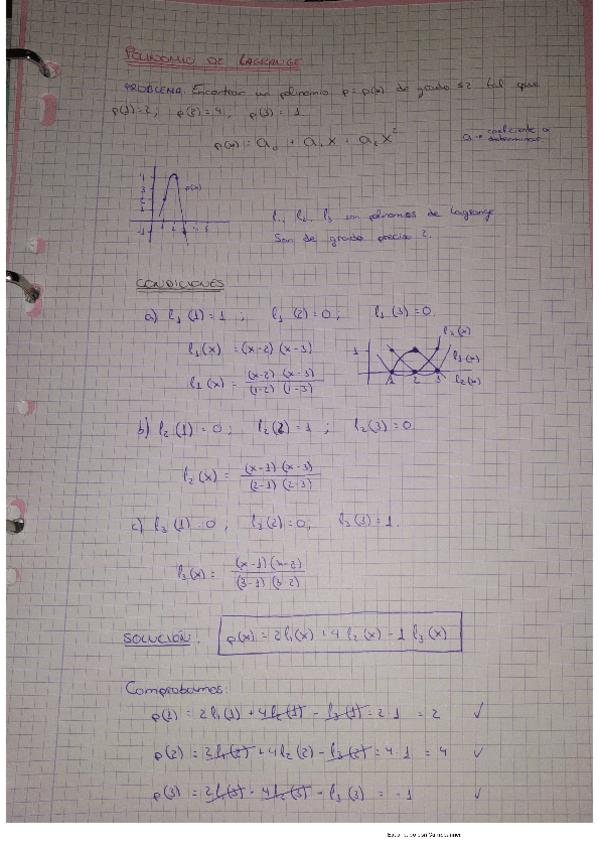 POLINOMIO DE LAGRANGE
PROBLEMA: Encontrar un polinomio p = p(x) de grado ≤2 tal que
p(1)=2; p(2)=4, p(3)=-1
p(x) = a₀ + a₁x + a₂x²
a → coeficiente a
determinar
4
3
2
1
-1
1 2 3 4 5
p(x)
l₁, l₂, l₃ son polinomios de Lagrange
Son de grado 2.
CONDICIONES
a) l₁(1)=1 ; l₁(2)=0 ; l₁(3)=0.
l₁(x) = (x-2)(x-3)
l₁(x) = (x-2)(x-3) / (1-2)(1-3)
1
1 2 3
l₃(x)
l₁(x)
l₂(x)
b) l₂(1)=0 ; l₂(2)=1 ; l₂(3)=0
l₂(x) = (x-1)(x-3) / (2-1)(2-3)
c) l₃(1)=0 , l₃(2)=0; l₃(3)=1.
l₃(x) = (x-1)(x-2) / (3-1)(3-2)
SOLUCIÓN. p(x) = 2l₁(x) + 4l₂(x) - 1 l₃(x)
Comprobamos:
p(1) = 2l₁(1) + 4l₂(1) - l₃(1) = 2·1 = 2 ✓
p(2) = 2l₁(2) + 4l₂(2) - l₃(2) = 4·1 = 4 ✓
p(3) = 2l₁(3) + 4l₂(3) - l₃(3) = -1 ✓